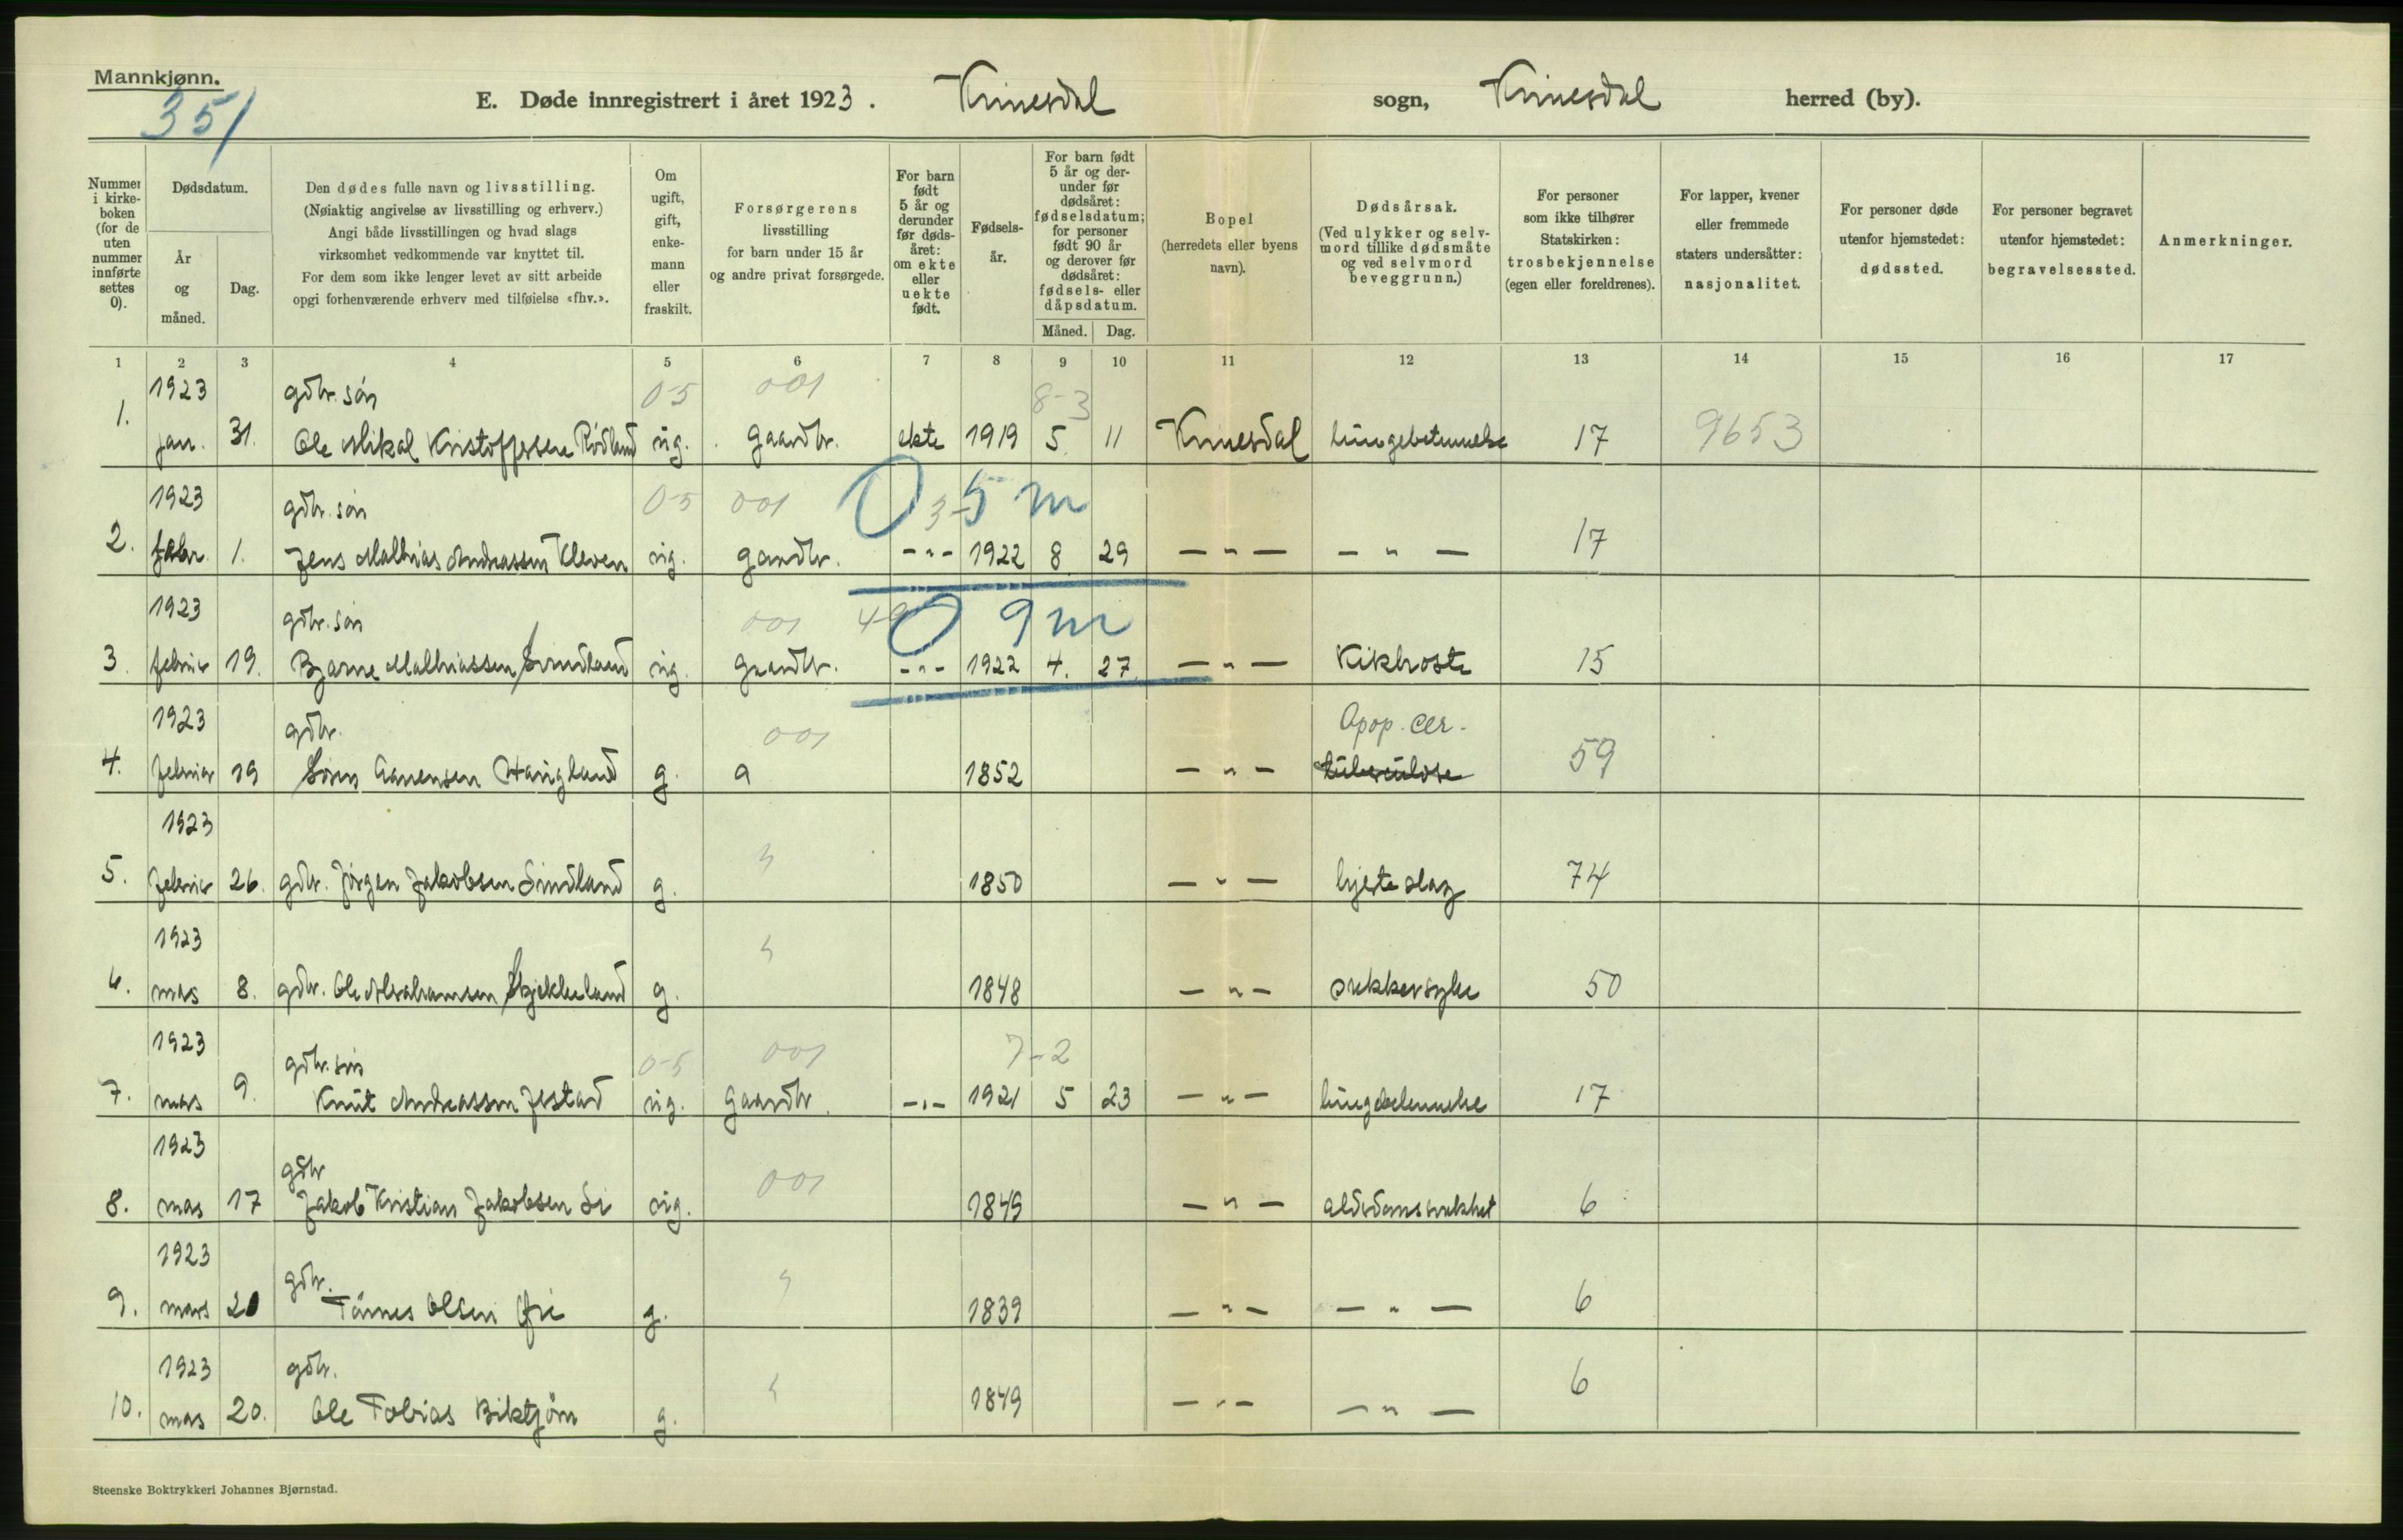 Mannkjønn.
351
E. Døde innregistrert i året 1923. Kvinesdal sogn, Kvinesdal herred (by).
Nummer i kirkeboken (for de uten nummer innførte settes 0).
Dødsdatum.
År og måned.
Dag.
Den dødes fulle navn og livsstilling.
(Nøiaktig angivelse av livsstilling og erhverv.)
Angi både livsstillingen og hvad slags
virksomhet vedkommende var knyttet til.
For dem som ikke lenger levet av sitt arbeide
opgi forhenværende erhverv med tilføielse «fhv.».
Om ugift, gift, enkemann eller fraskilt.
Forsørgerens livsstilling
for barn under 15 år
og andre privat forsørgede.
For barn født 5 år og derunder før dødsåret: om ekte eller uekte født.
Fødselsår.
For barn født 5 år og derunder før dødsåret: fødselsdatum; for personer født 90 år og derover før dødsåret: fødsels- eller dåpsdatum.
Måned. Dag.
Bopel
(herredets eller byens navn).
Dødsårsak.
(Ved ulykker og selvmord tillike dødsmåte og ved selvmord beveggrunn.)
For personer som ikke tilhører Statskirken: trosbekjennelse (egen eller foreldrenes).
For lapper, kvener eller fremmede staters undersåtter: nasjonalitet.
For personer døde utenfor hjemstedet: dødssted.
For personer begravet utenfor hjemstedet: begravelsessted.
Anmerkninger.
1 2 3 4 5 6 7 8 9 10 11 12 13 14 15 16 17
1923 gdbr. søn 0-5 001 8-3
1. jan. 31. Ole Mikal Kristoffersen Rødland ug. gaardbr. ekte 1919 5. 11 Kvinesdal lungebetennelse 17 9653
1923 gdbr. søn 0-5 001 0 3-5 m
2. febr. 1. Jens Mathias Andreassen Kleven ug. gaardbr. -"- 1922 8 29 -"- -"- 17
1923 gdbr. søn 001 0 9 m
3. februar 19. Bjarne Mathiassen Svindland ug. gaardbr. -"- 1922 4. 27 -"- Kikhoste 15
1923 gdbr. 001 Apop. cer.
4. februar 19 Søren Aanensen Haugland g. a 1852 -"- tuberculose 59
1923
5. februar 26. gdbr. Jørgen Jakobsen Sindland g. " 1850 -"- hjerteslag 74
1923
6. mars 8. gdbr. Ole Abrahamsen g. " 1848 -"- sukkersyke 50
1923 gdbr. søn 0-5 001 7-2
7. mars 9. Knut Andreassen Jestad ug. Gaardbr. -"- 1921 5 23 -"- lungebetennelse 17
1923 gdbr
8. mars 17 Jakob Kristian Jakobsen Li ug. 001 1849 -"- alderdomssvakhet 6
1923 gdbr.
9. mars 20 Tønnes Olsen Øie g. " 1839 -"- -"- 6
1923 gdbr.
10. mars 20. Ole Tobias Biktjørn g. " 1849 -"- -"- 6
Steenske Boktrykkeri Johannes Bjørnstad.